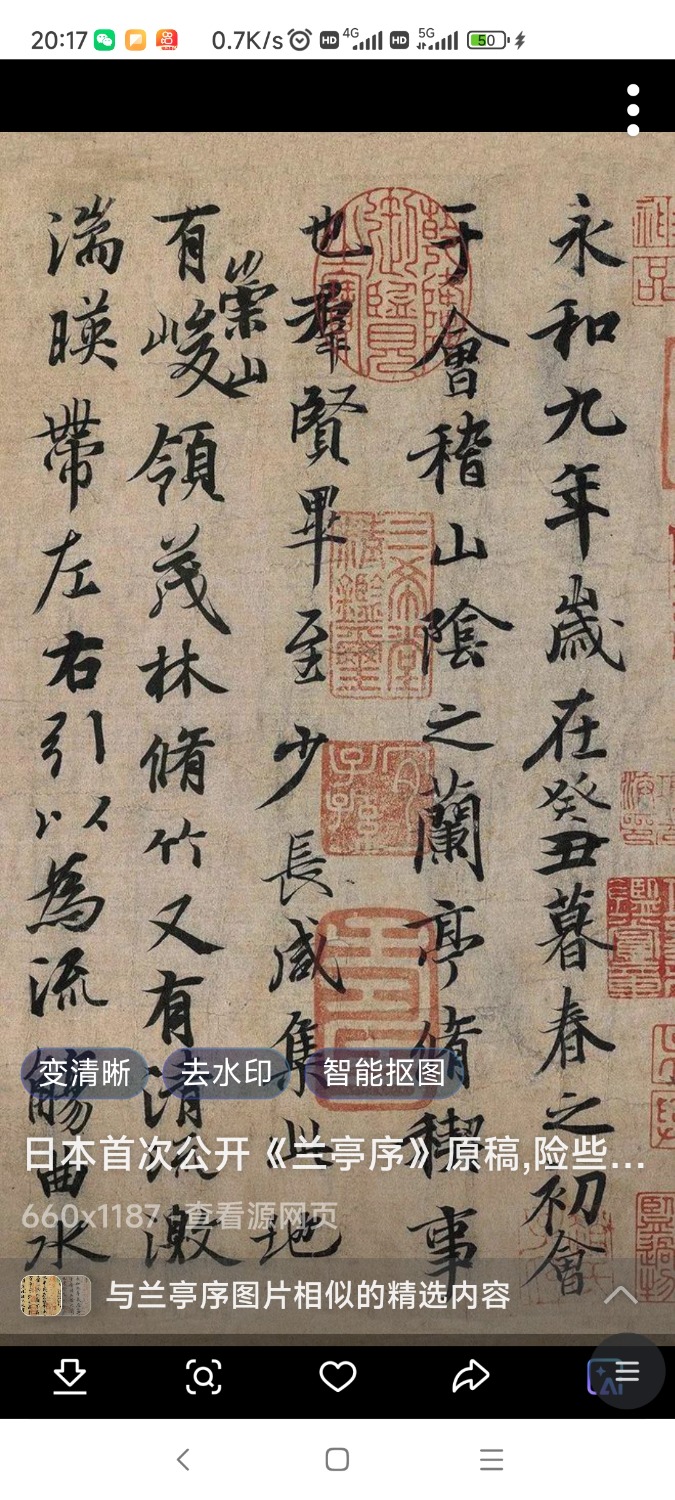 20:17
0.7K/s
HD
4G
HD
5G
50
永和九年歲在癸丑暮春之初會
于會稽山陰之蘭亭脩稧事
也羣賢畢至少長咸集此地
有崇山峻領茂林脩竹又有清流激
湍暎帶左右引以為流觴曲水
三希堂精鑑璽
宜子孫
变清晰
去水印
智能抠图
日本首次公开《兰亭序》原稿,险些...
660x1187
查看源网页
与兰亭序图片相似的精选内容
AI